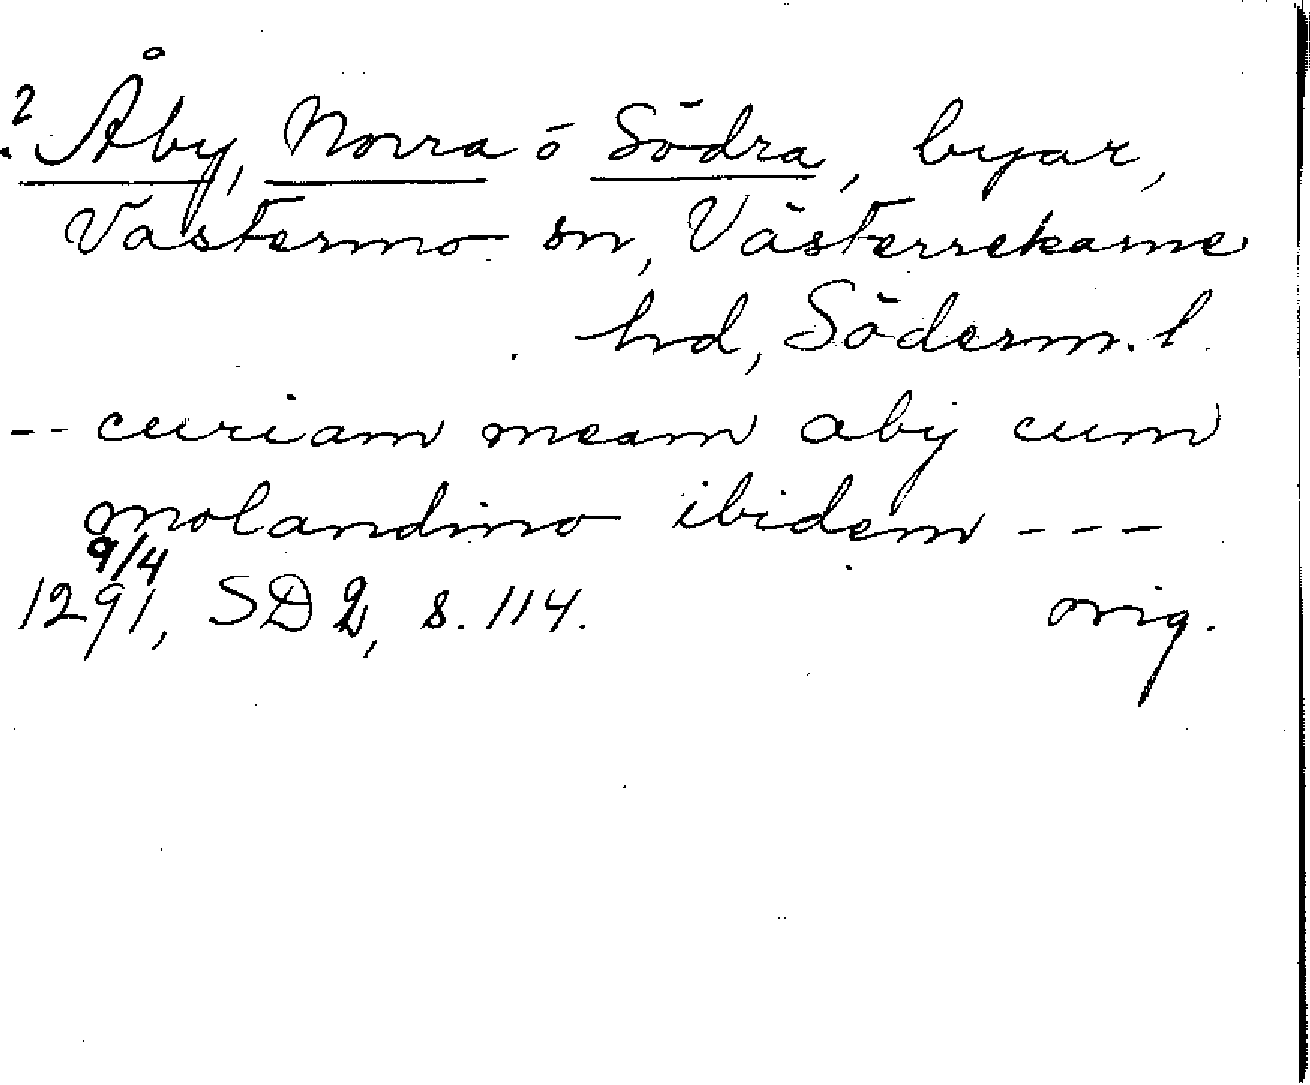 ? Åby, Norra o Södra, byar,
Västermo sn, Västerrekarne
hd, Söderm. l.
-- curiam meam aby cum
molandino ibidem ---
9/4
1291, SD 2, s. 114. orig.